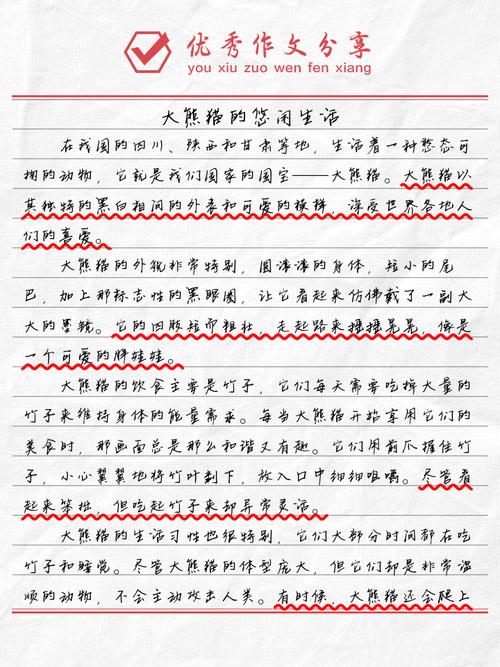 优秀作文分享
you xiu zuo wen fen xiang
大熊猫的悠闲生活
在我国的四川、陕西和甘肃等地，生活着一种憨态可
掬的动物，它就是我们国家的国宝——大熊猫。大熊猫以
其独特的黑白相间的外表和可爱的模样，深受世界各地人
们的喜爱。
大熊猫的外貌非常特别，圆滚滚的身体，短小的尾
巴，加上那标志性的黑眼圈，让它看起来仿佛戴了一副大
大的墨镜。它的四肢短而粗壮，走起路来摇摇晃晃，像是
一个可爱的胖娃娃。
大熊猫的饮食主要是竹子，它们每天需要吃掉大量的
竹子来维持身体的能量需求。每当大熊猫开始享用它们的
美食时，那画面总是那么和谐又有趣。它们用前爪握住竹
子，小心翼翼地将竹叶剥下，放入口中细细咀嚼。尽管看
起来笨拙，但吃起竹子来却异常灵活。
大熊猫的生活习性也很特别，它们大部分时间都在吃
竹子和睡觉。尽管大熊猫的体型庞大，但它们却是非常温
顺的动物，不会主动攻击人类。有时候，大熊猫还会爬上